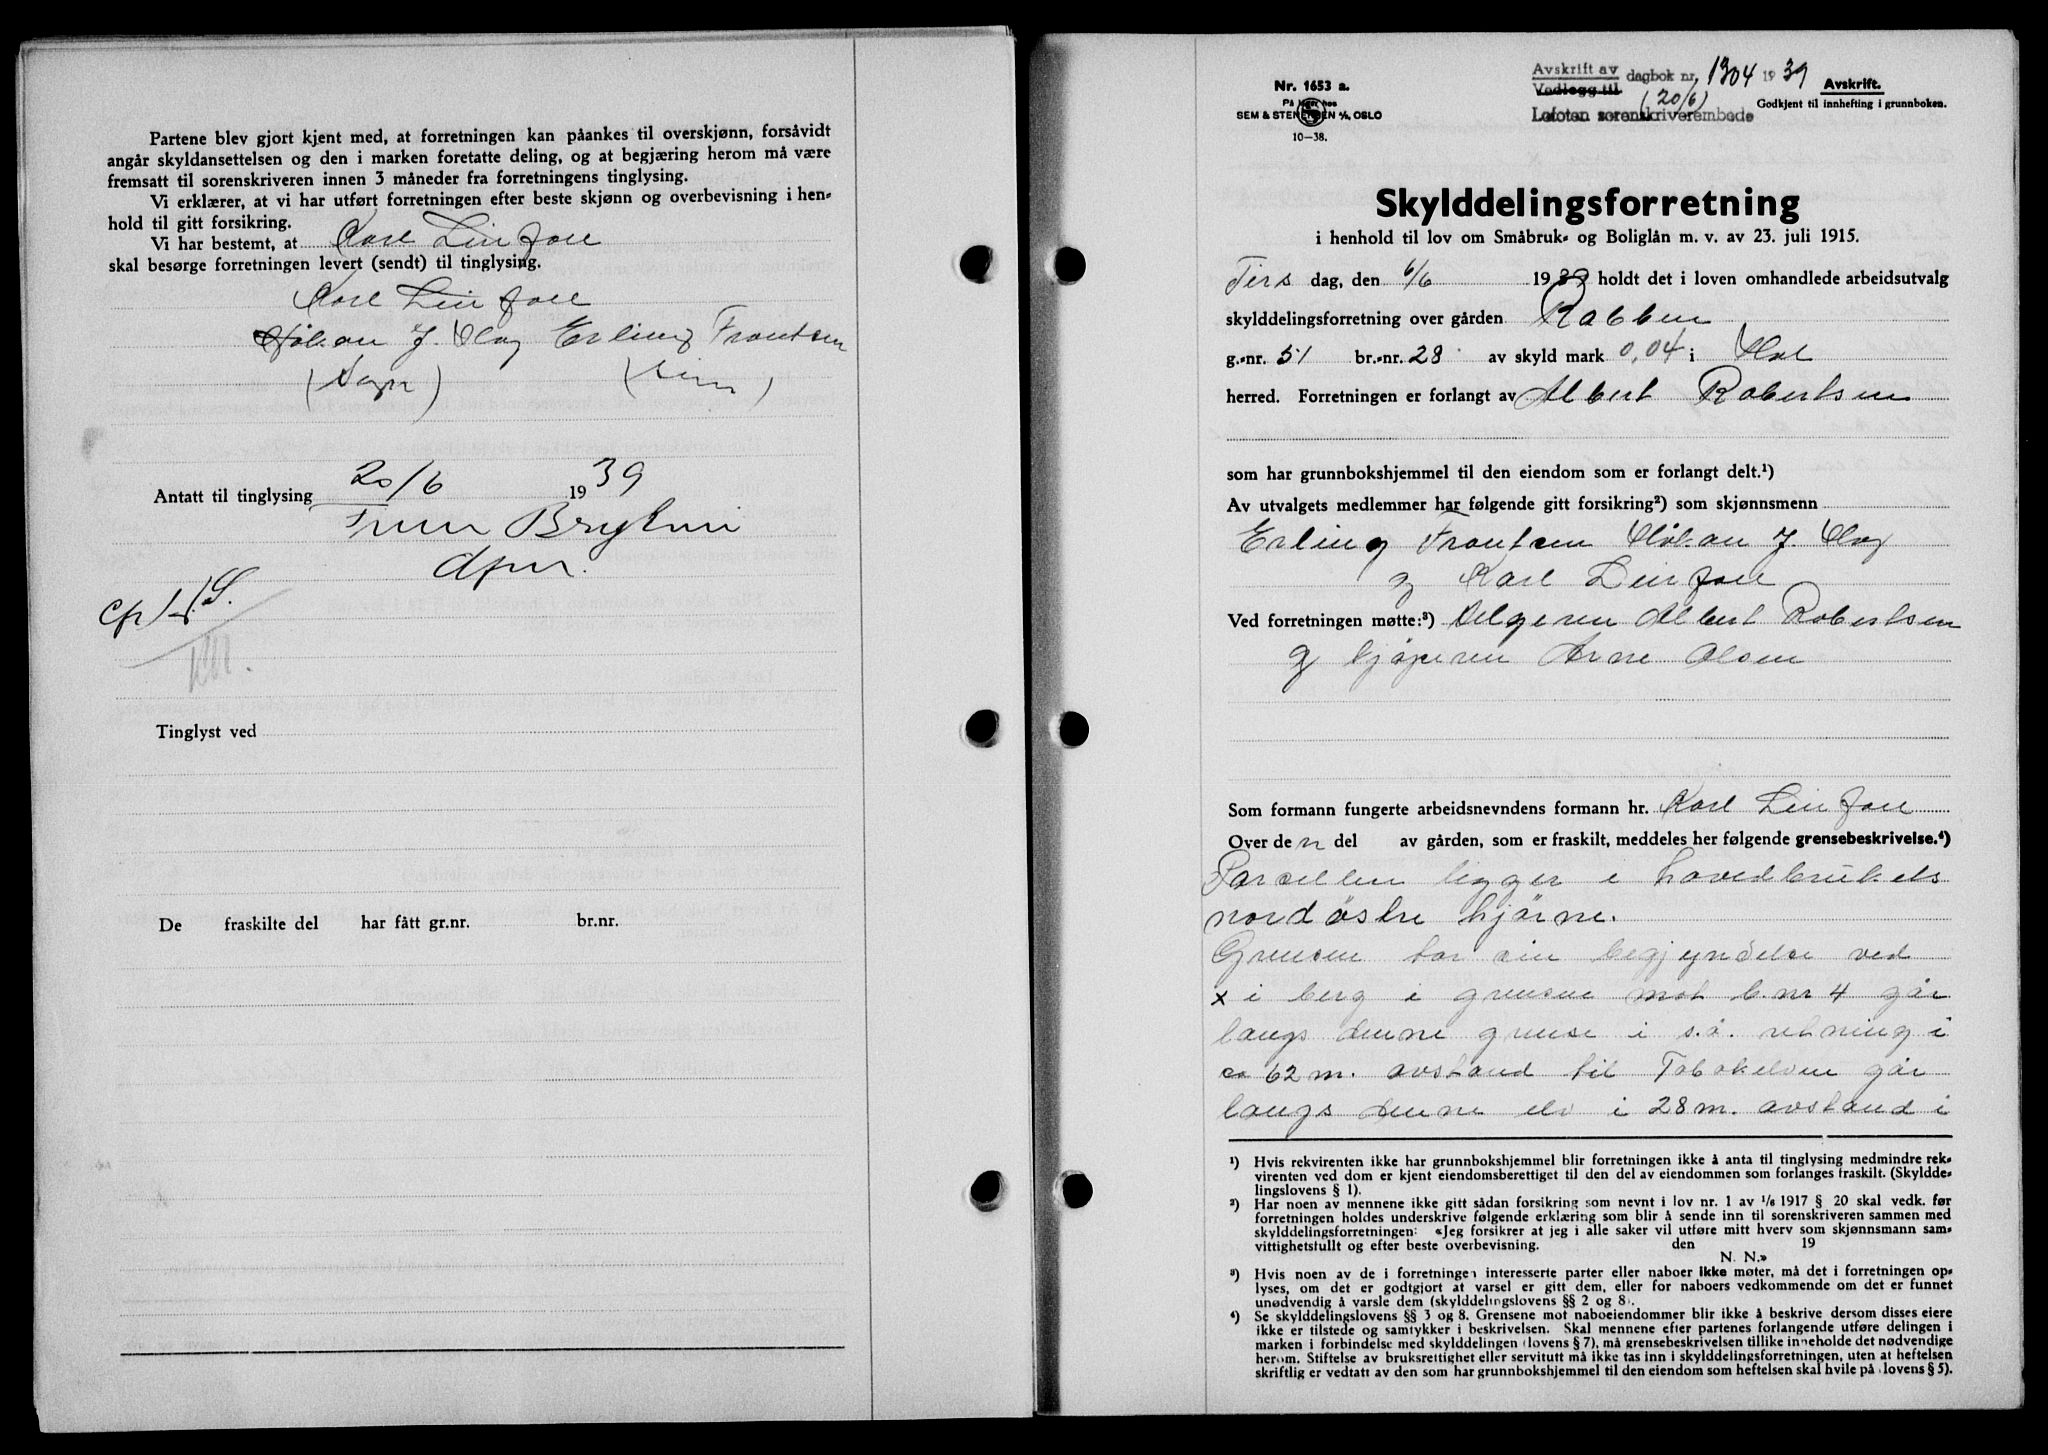 Partene blev gjort kjent med, at forretningen kan påankes til overskjønn, forsåvidt
angår skyldansettelsen og den i marken foretatte deling, og at begjæring herom må være
fremsatt til sorenskriveren innen 3 måneder fra forretningens tinglysing.
Vi erklærer, at vi har utført forretningen efter beste skjønn og overbevisning i hen-
hold til gitt forsikring.
Vi har bestemt, at Karl
skal besørge forretningen levert (sendt) til tinglysing.
Karl
Håkan J. Hag Erling Frantsen
(sign) (sign)
Antatt til tinglysing 20/6 1939
Finn
Tinglyst ved
De fraskilte del har fått gr.nr. br.nr.
Nr. 1653 a.
På lager hos
SEM & STENERSEN A/S, OSLO
10-38.
Avskrift av dagbok nr. 1304 1939
Vedlegg til (20/6)
Lofoten sorenskriverembede
Avskrift.
Godkjent til innhefting i grunnboken.
Skylddelingsforretning
i henhold til lov om Småbruk- og Boliglån m. v. av 23. juli 1915.
Tirsdag, den 6/6 1939 holdt det i loven omhandlede arbeidsutvalg
skylddelingsforretning over gården Rabben
g.-nr. 51 br.-nr. 28 av skyld mark 0,04 i Hol
herred. Forretningen er forlangt av Albert Robertsen
som har grunnbokshjemmel til den eiendom som er forlangt delt.¹)
Av utvalgets medlemmer har følgende gitt forsikring²) som skjønnsmenn
Erling Frantsen Håkan J. Hag
og Karl
Ved forretningen møtte:³) selgeren Albert Robertsen
og kjøperen Arne Olsen
Som formann fungerte arbeidsnevndens formann hr. Karl
Over den del av gården, som er fraskilt, meddeles her følgende grensebeskrivelse.⁴)
Parcellen ligger i hovedbrukets
nordøstre hjørne.
Grensen tar sin begjyndelse ved
x i berg i grensen mot b.nr 4 går
langs denne grense i s.ø. retning i
ca 62 m. avstand til Tabakelven går
langs denne elv i 28 m. avstand i
¹) Hvis rekvirenten ikke har grunnbokshjemmel blir forretningen ikke å anta til tinglysing medmindre rek-
virenten ved dom er kjent eiendomsberettiget til den del av eiendommen som forlanges fraskilt. (Skyldde-
lingslovens § 1).
²) Har noen av mennene ikke gitt sådan forsikring som nevnt i lov nr. 1 av 1/6 1917 § 20 skal vedk. før
forretningen holdes underskrive følgende erklæring som blir å sende inn til sorenskriveren sammen med
skylddelingsforretningen: «Jeg forsikrer at jeg i alle saker vil utføre mitt hverv som skjønnsmann sam-
vittighetsfullt og efter beste overbevisning. den 19
N. N.»
³) Hvis noen av de i forretningen interesserte parter eller naboer ikke møter, må det i forretningen op-
lyses, om det er godtgjort at varsel er gitt dem, eller for naboers vedkommende om det er funnet
unødvendig å varsle dem (skylddelingslovens §§ 2 og 8).
⁴) Se skylddelingslovens §§ 3 og 8. Grensene mot naboeiendommer blir ikke å beskrive dersom disses eiere
ikke er tilstede og samtykker i beskrivelsen. Skal mennene efter partenes forlangende utføre delingen i
marken i forbindelse med skylddelingen (lovens § 7), må grensebeskrivelsen tillike inneholde det nødvendige
herom. Stiftelse av bruksrettighet eller servitutt må ikke tas inn i skylddelingsforretningen, uten at heftelsen
skriftlig er vedtatt av den som har grunnbokshjemmel til den eiendom som heftelsen skal hvile på (lovens § 5).